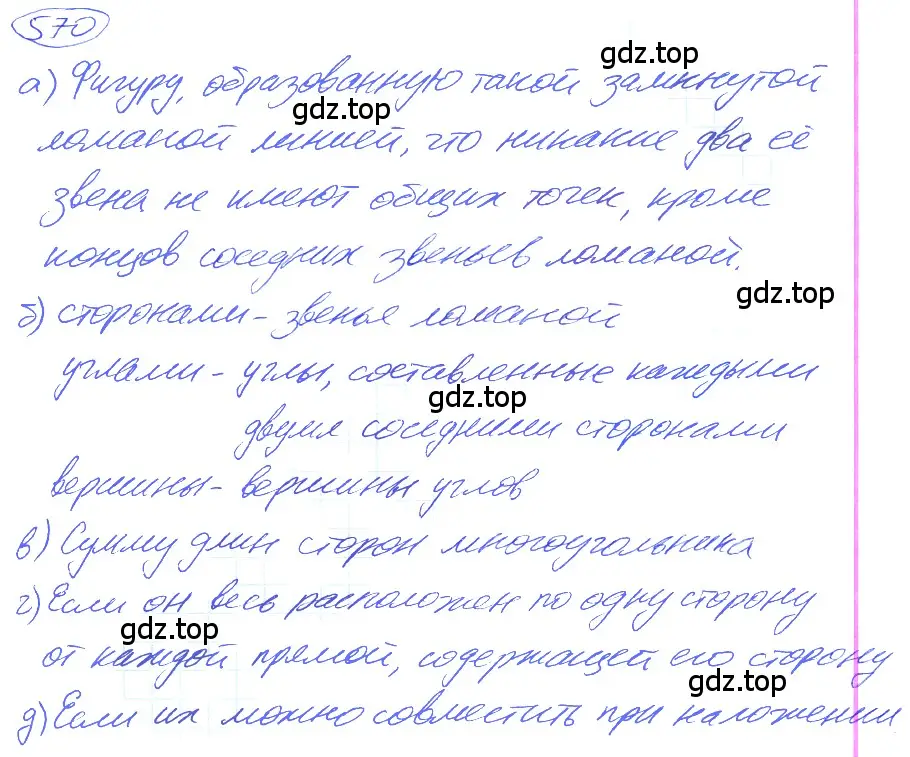 570
gdz.top
а) Фигуру, образованную такой замкнутой
gdz.top
ломаной линией, что никакие два её
звена не имеют общих точек, кроме
концов соседних звеньев ломаной.
gdz.top
б) сторонами - звенья ломаной
углами - углы, составленные каждыми
gdz.top
двумя соседними сторонами
вершины - вершины углов
в) Сумму длин сторон многоугольника
г) Если он весь расположен по одну сторону
gdz.top
от каждой прямой, содержащей его сторону
gdz.top
д) Если их можно совместить при наложении